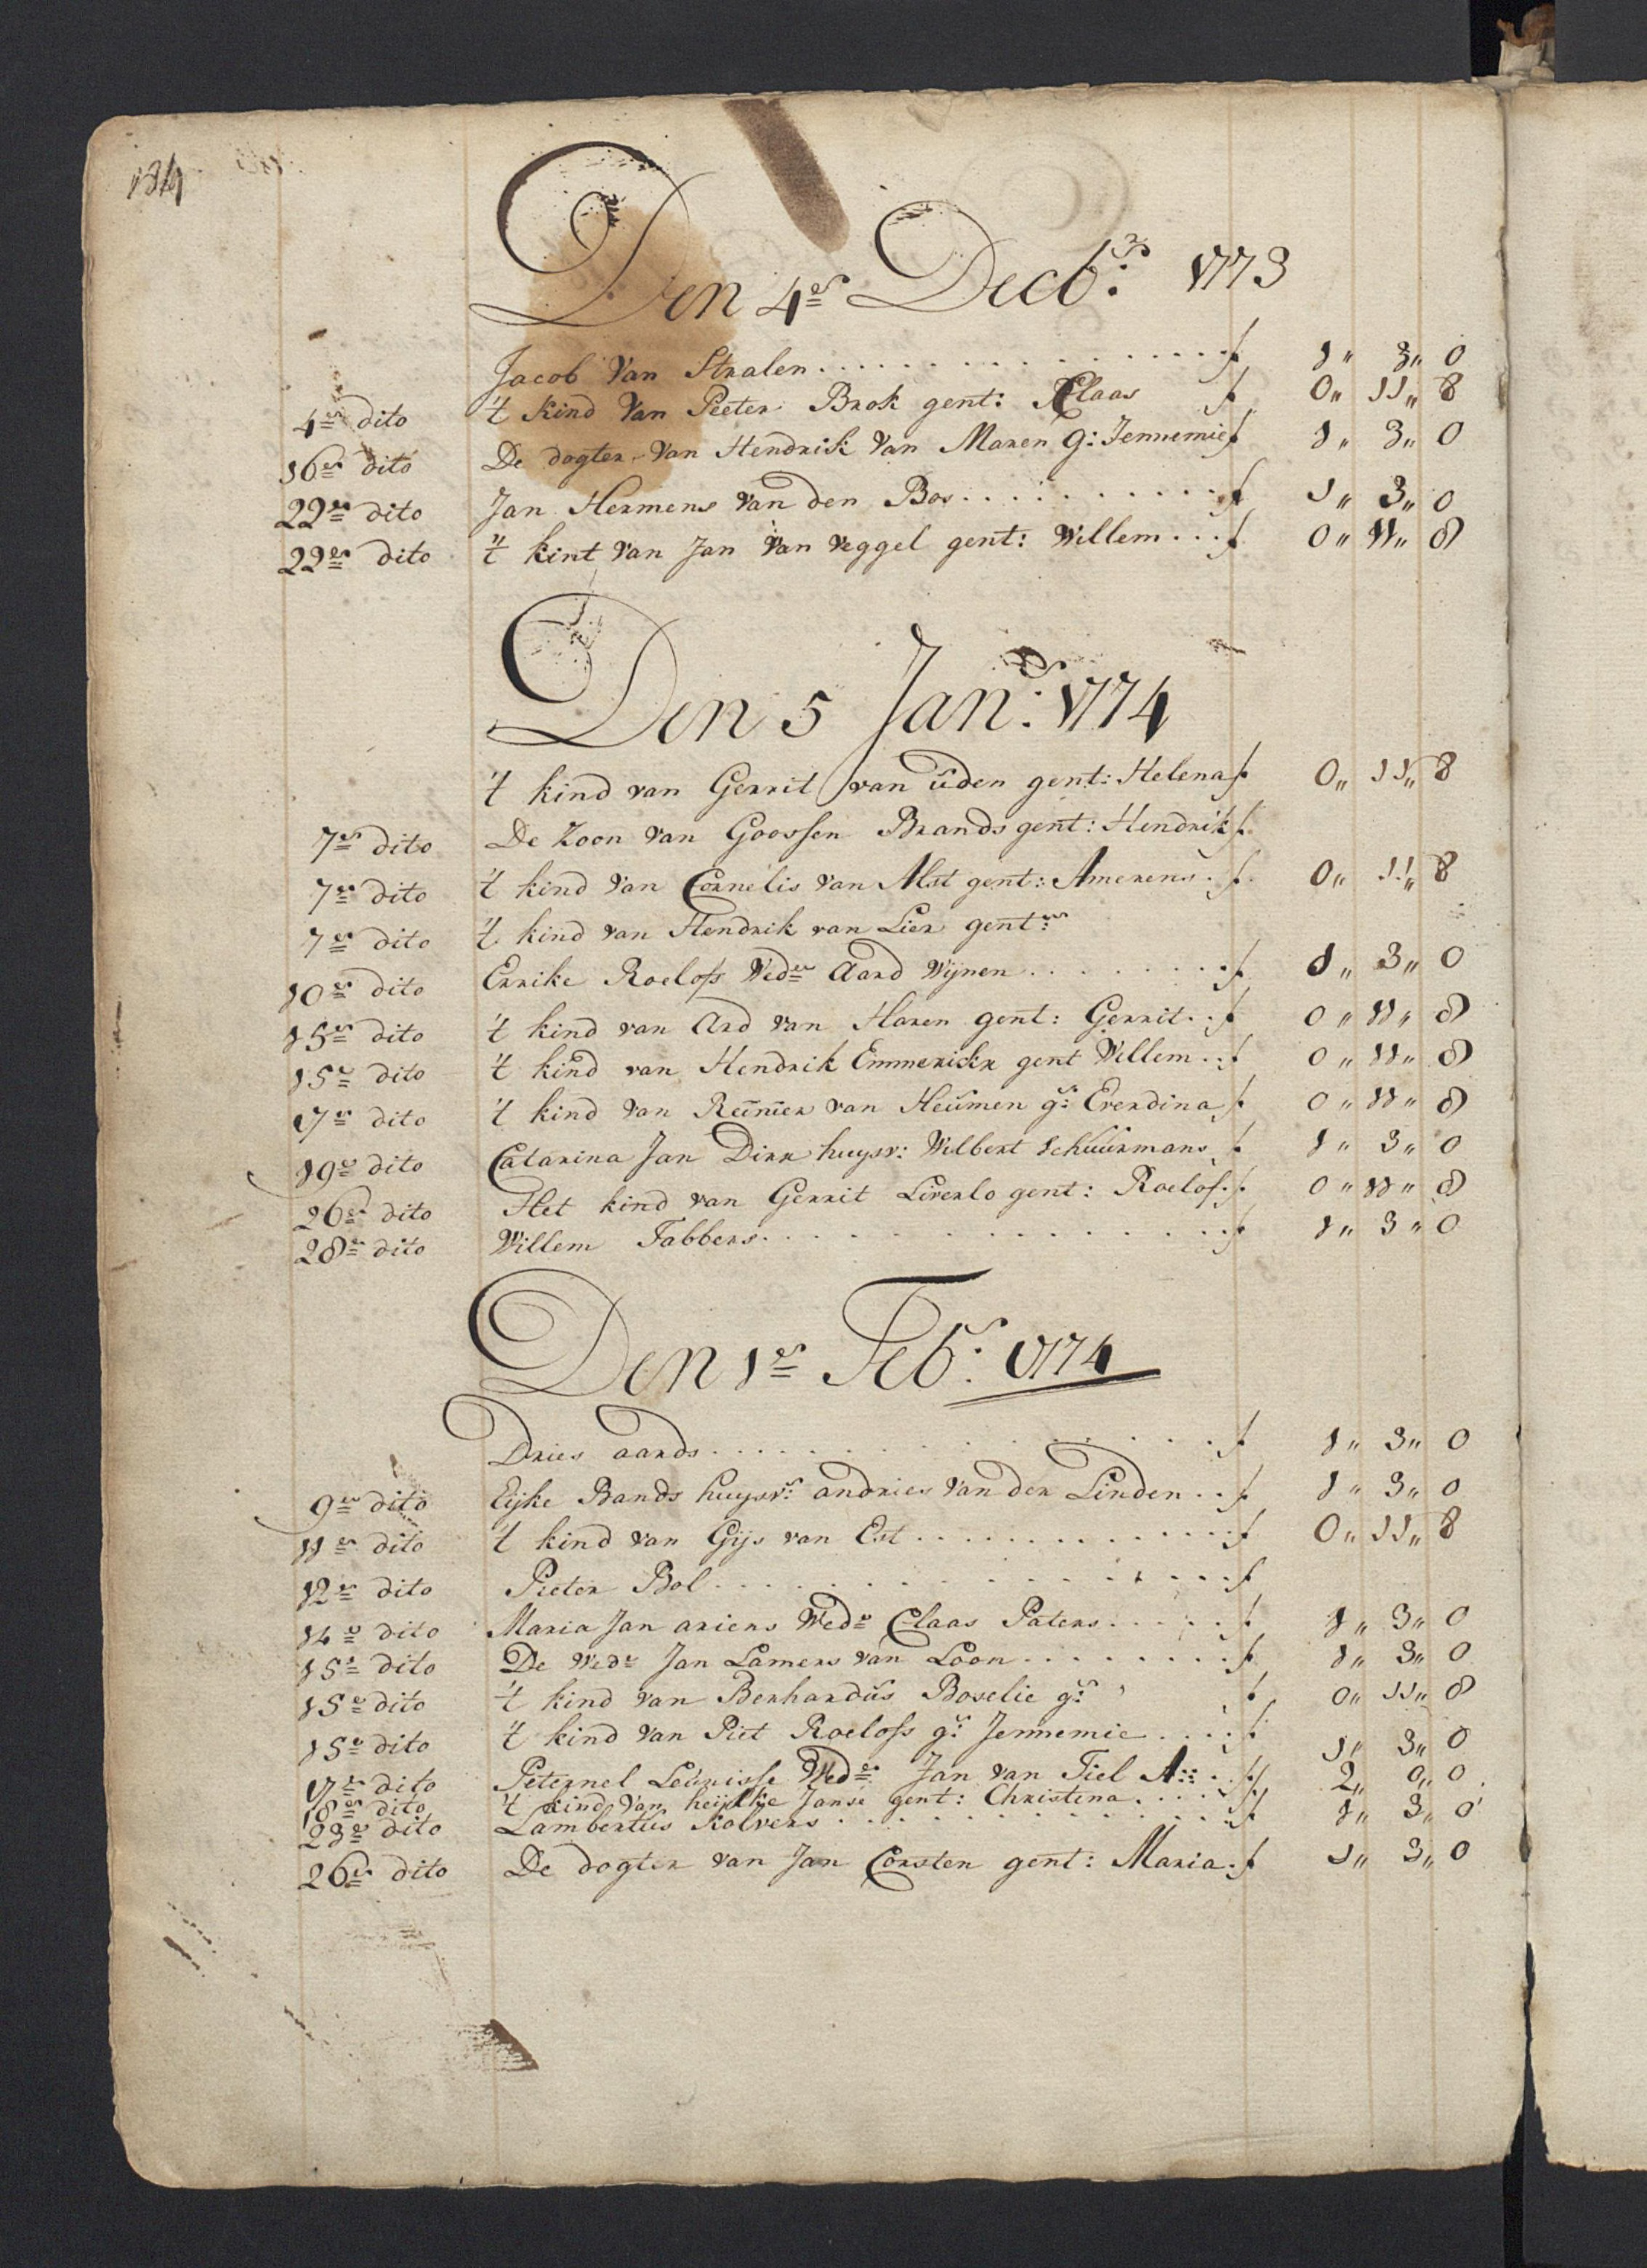 184
Den 4en Decbr: 1773
Jacob Van Stralen . . . . . f 1„ 3„ 0
4en dito 't Kind Van Peeter Brok gent: Claas f 0„ 11„ 8
16en dito De dogter Van Hendrik Van Maren g: Jennemie f 1„ 3„ 0
22en dito Jan Hermens Van den Bos . . . . . f 1„ 3„ 0
22en dito 't kint Van Jan Van Veggel gent: Willem . . . f 0„ 11„ 8
Den 5 Jan: 1774
't kind van Gerrit van uden gent: Helena f 0„ 11„ 8
7en dito De Zoon Van Goossen Brands gent: Hendrik f
7en dito 't kind Van Cornelis Van Alst gent: Amerens . f 0„ 11„ 8
7en dito 't kind van Hendrik van Lier gent:
10en dito Erike Roelofs Wede Aard Wijnen . . . . . f 1„ 3„ 0
15en dito 't kind van Ard Van Haren gent: Gerrit . . f 0„ 11„ 8
15e dito 't kind van Hendrik Emmerickx gent Willem . . f 0„ 11„ 8
17en dito 't kind Van Reinier van Heumen g: Everdina f 0„ 11„ 8
19e dito Catarina Jan Dirx huysv: Wilbert Schuurmans f 1„ 3„ 0
26en dito Het kind van Gerrit Liverlo gent: Roelof . f 0„ 11„ 8
28en dito Willem Fabbers . . . . . f 1„ 3„ 0
Den 1en Feb: 1774
Dries aards . . . . . f 1„ 3„ 0
9en dito Eijke Bands huysv: andries Van der Linden . . f 1„ 3„ 0
11en dito 't kind Van Gijs van Est . . . . . f 0„ 11„ 8
12en dito Pieter Bol . . . . . f
14e dito Maria Jan ariens Wede Claas Paters . . . . . f 1„ 3„ 0
15e dito De Wede Jan Lamers van Loon . . . . . f 1„ 3„ 0
15e dito 't kind van Berhardus Boselie g: f 0„ 11„ 8
15e dito 't kind Van Piet Roelofs g: Jennemie . . . . f 1„ 3„ 0
17en dito Peternel Leunisse Wede Jan Van Tiel . . f 2„ 0„ 0
18en dito 't kind Van heijltje Janse gent: Christina . . . . f 1„ 3„ 0
23e dito Lambertus Kolvers . . . . . f
26en dito De dogter van Jan Corsten gent: Maria . f 1„ 3„ 0